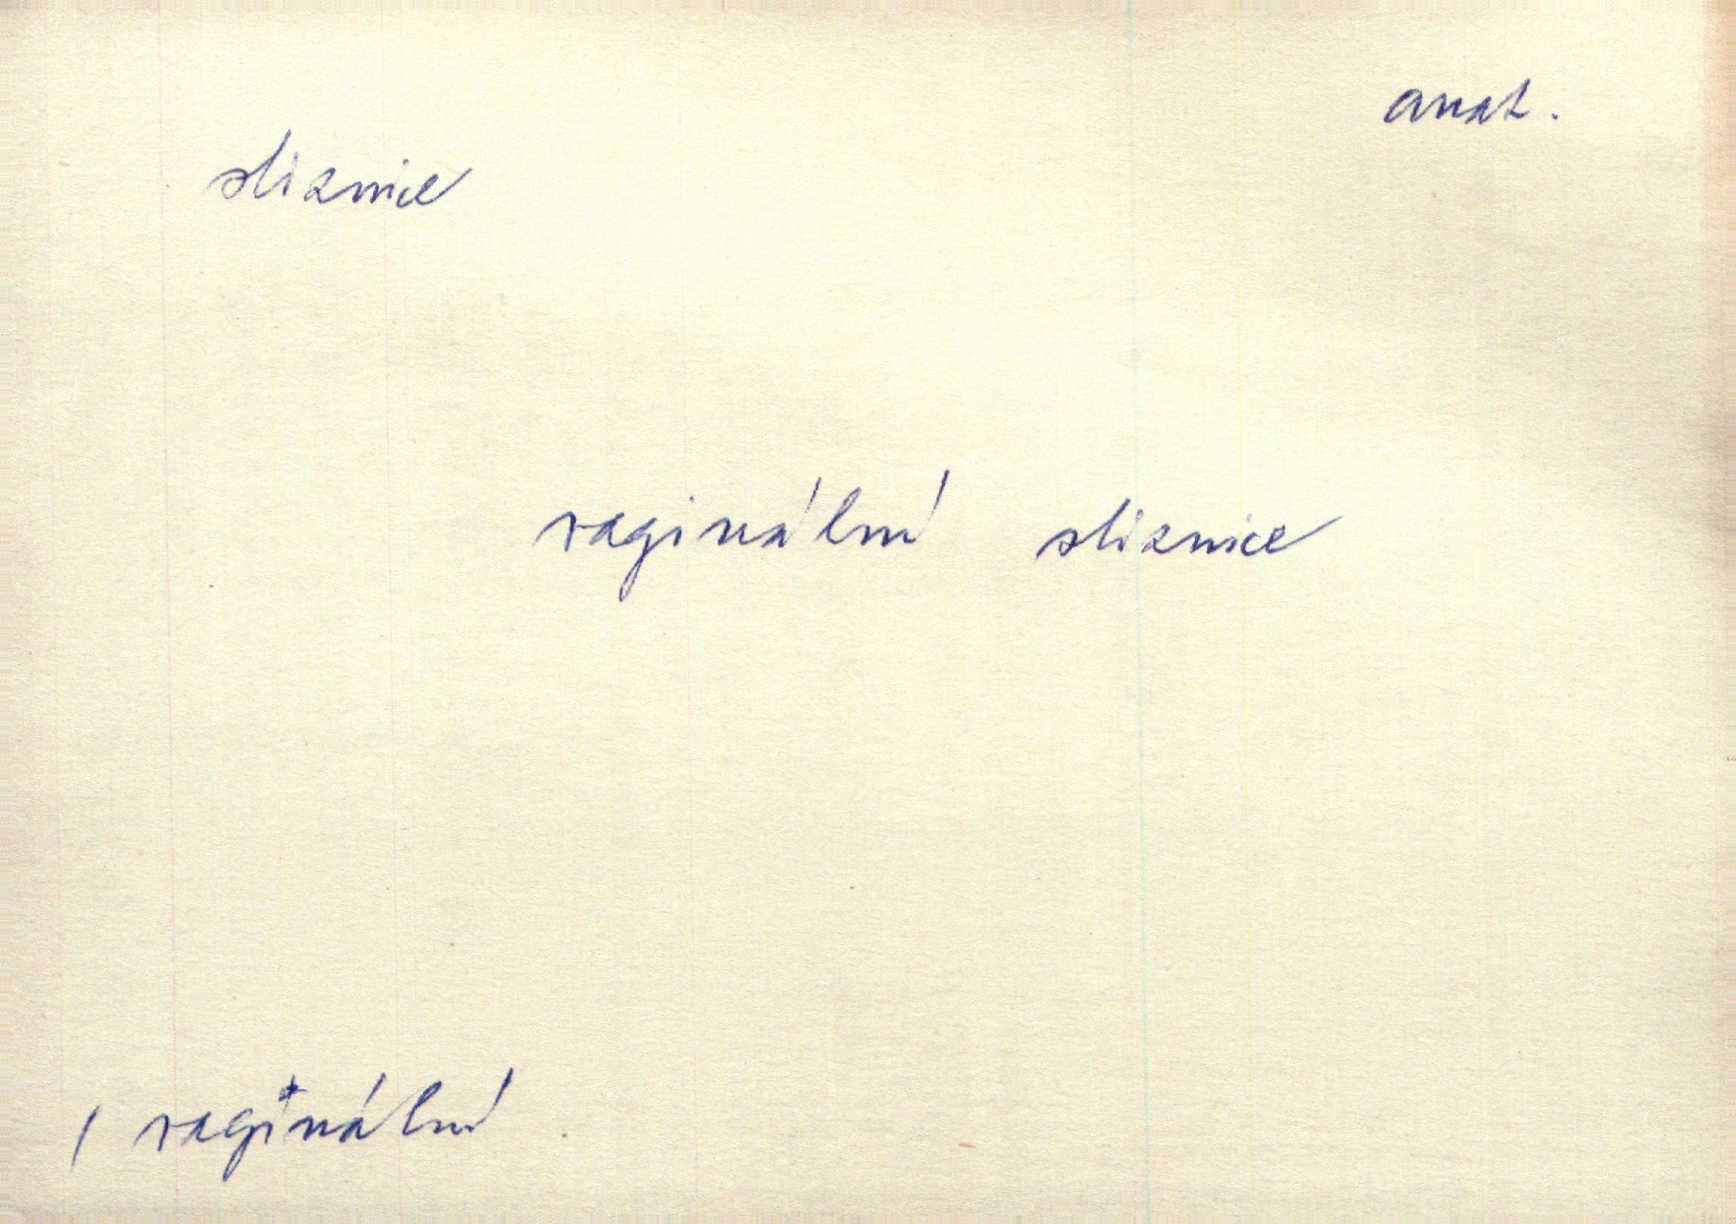 anat.
sliznice
vaginální sliznice
/ vaginální